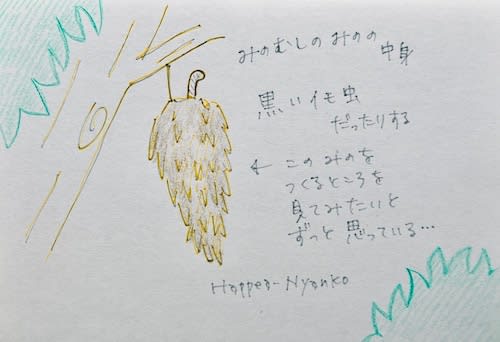 みのむしのみのの中身
黒いイモ虫
だったりする
← このみのを
つくるところを
見てみたいと
ずっと思っている…
Happea-Nyanko